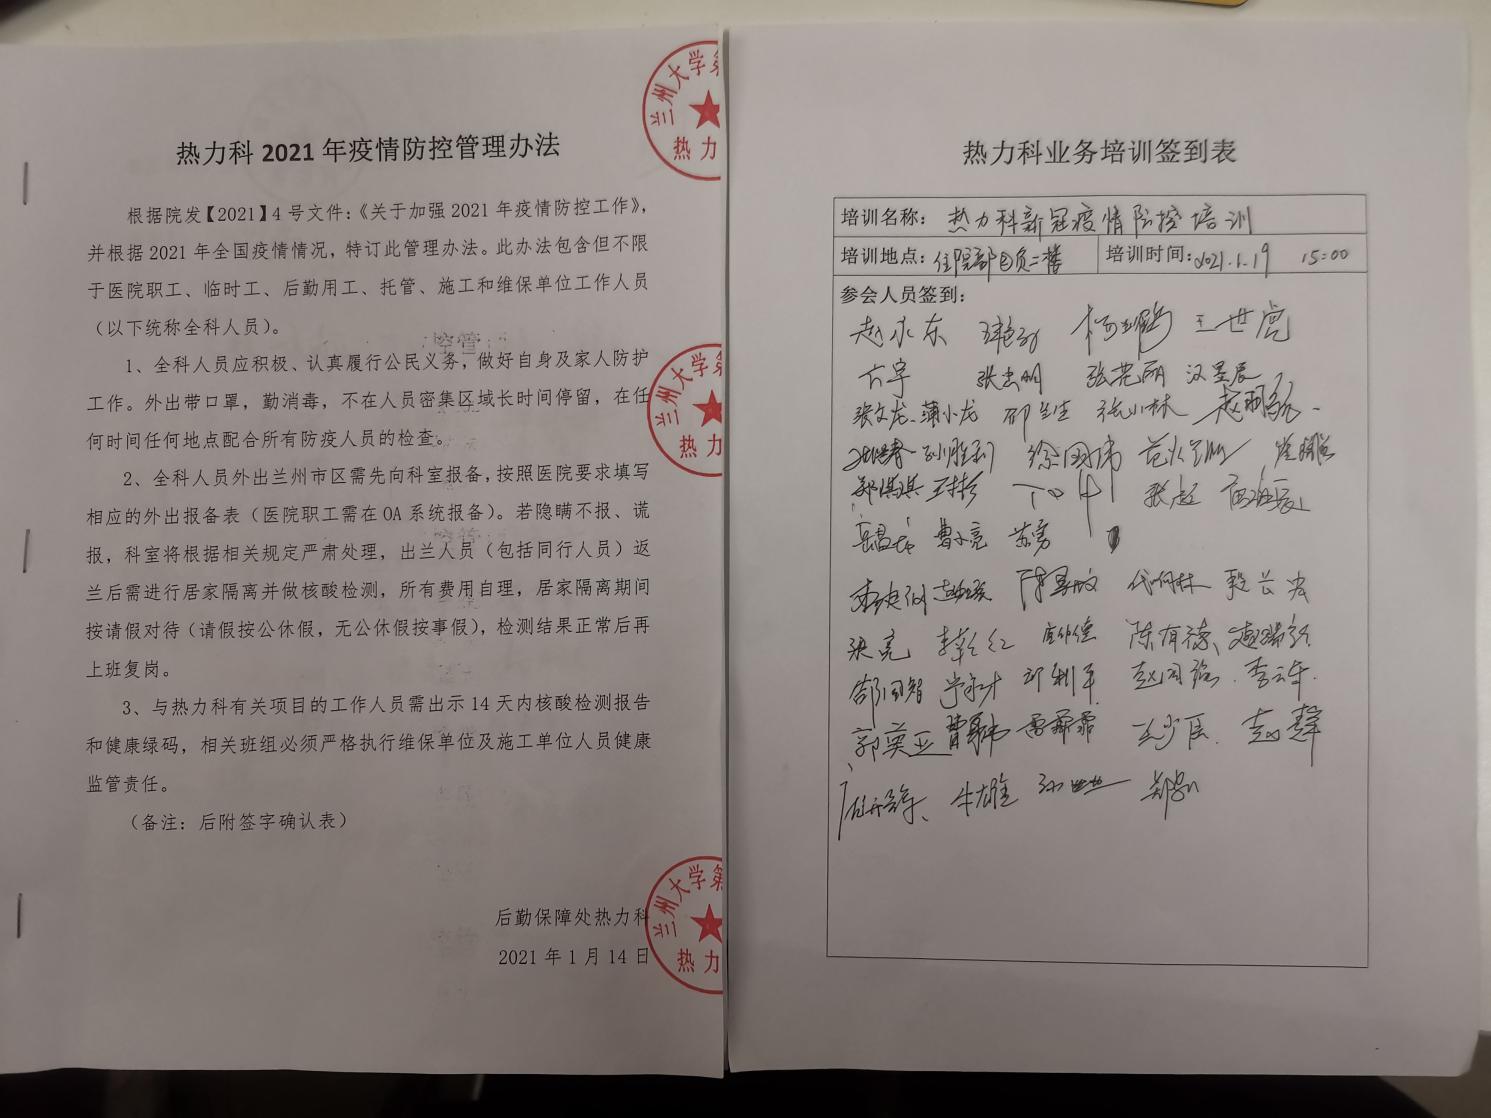 热力科 2021 年疫情防控管理办法
根据院发【2021】4 号文件：《关于加强 2021 年疫情防控工作》，
并根据 2021 年全国疫情情况，特订此管理办法。此办法包含但不限
于医院职工、临时工、后勤用工、托管、施工和维保单位工作人员
（以下统称全科人员）。
1、全科人员应积极、认真履行公民义务，做好自身及家人防护
工作。外出带口罩，勤消毒，不在人员密集区域长时间停留，在任
何时间任何地点配合所有防疫人员的检查。
2、全科人员外出兰州市区需先向科室报备，按照医院要求填写
相应的外出报备表（医院职工需在 OA 系统报备）。若隐瞒不报、谎
报，科室将根据相关规定严肃处理，出兰人员（包括同行人员）返
兰后需进行居家隔离并做核酸检测，所有费用自理，居家隔离期间
按请假对待（请假按公休假，无公休假按事假），检测结果正常后再
上班复岗。
3、与热力科有关项目的工作人员需出示 14 天内核酸检测报告
和健康绿码，相关班组必须严格执行维保单位及施工单位人员健康
监管责任。
（备注：后附签字确认表）
后勤保障处热力科
2021 年 1 月 14 日
兰州大学第
热力
兰州大学第
热力
兰州大学第
热力
热力科业务培训签到表
培训名称： 热力科新冠疫情防控培训
培训地点：住院部 负二楼 培训时间：2021.1.19 15:00
参会人员签到：
赵永东 王世虎
张忠明 张艺丽 汉星辰
张文龙、蒲小龙 邵兰生 张小林
孙胜利 徐国伟
郑淇淇 张彪
曹小亮 苏勇
张亮 李红 陈有德、
郜国智 邓利军 赵国强 李云年
郭英亚 雷霏霏 王少臣 赵静
牛雄